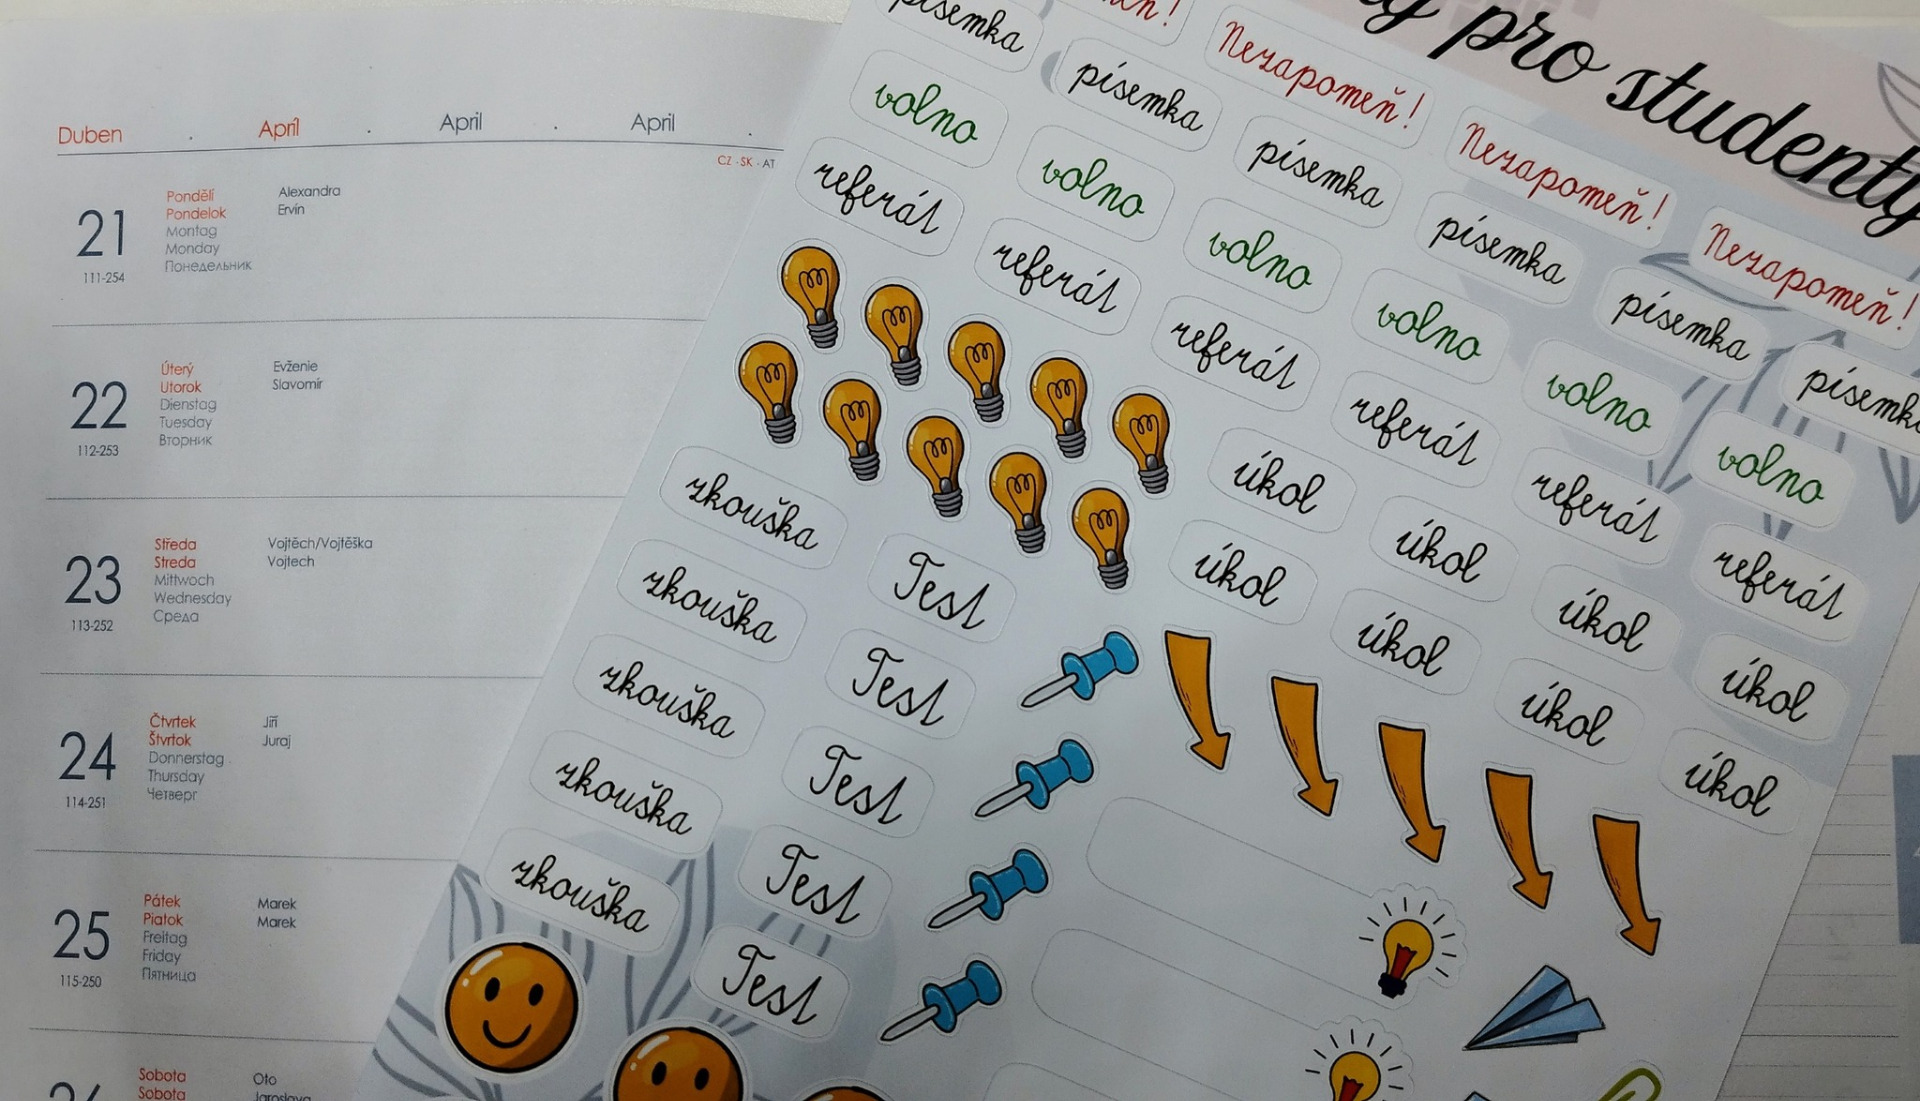 Duben April April April
CZ - SK - AT
21
111-254
Pondělí
Pondelok
Montag
Monday
Понедельник
Alexandra
Ervín
22
112-253
Úterý
Utorok
Dienstag
Tuesday
Вторник
Evženie
Slavomír
23
113-252
Středa
Streda
Mittwoch
Wednesday
Среда
Vojtěch/Vojtěška
Vojtech
24
114-251
Čtvrtek
Štvrtok
Donnerstag
Thursday
Четверг
Jiří
Juraj
25
115-250
Pátek
Piatok
Freitag
Friday
Пятница
Marek
Marek
Sobota
Sobota
Oto
Jaroslava
pro studenty
Nezapomeň!
Nezapomeň!
Nezapomeň!
písemka
písemka
písemka
písemka
písemka
písemka
volno
volno
volno
volno
volno
volno
referát
referát
referát
referát
referát
referát
úkol
úkol
úkol
úkol
úkol
úkol
úkol
úkol
zkouška
zkouška
zkouška
zkouška
zkouška
Test
Test
Test
Test
Test